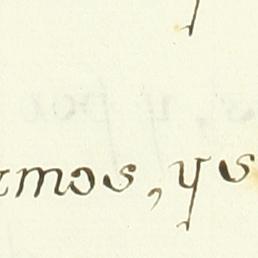 amos, ys